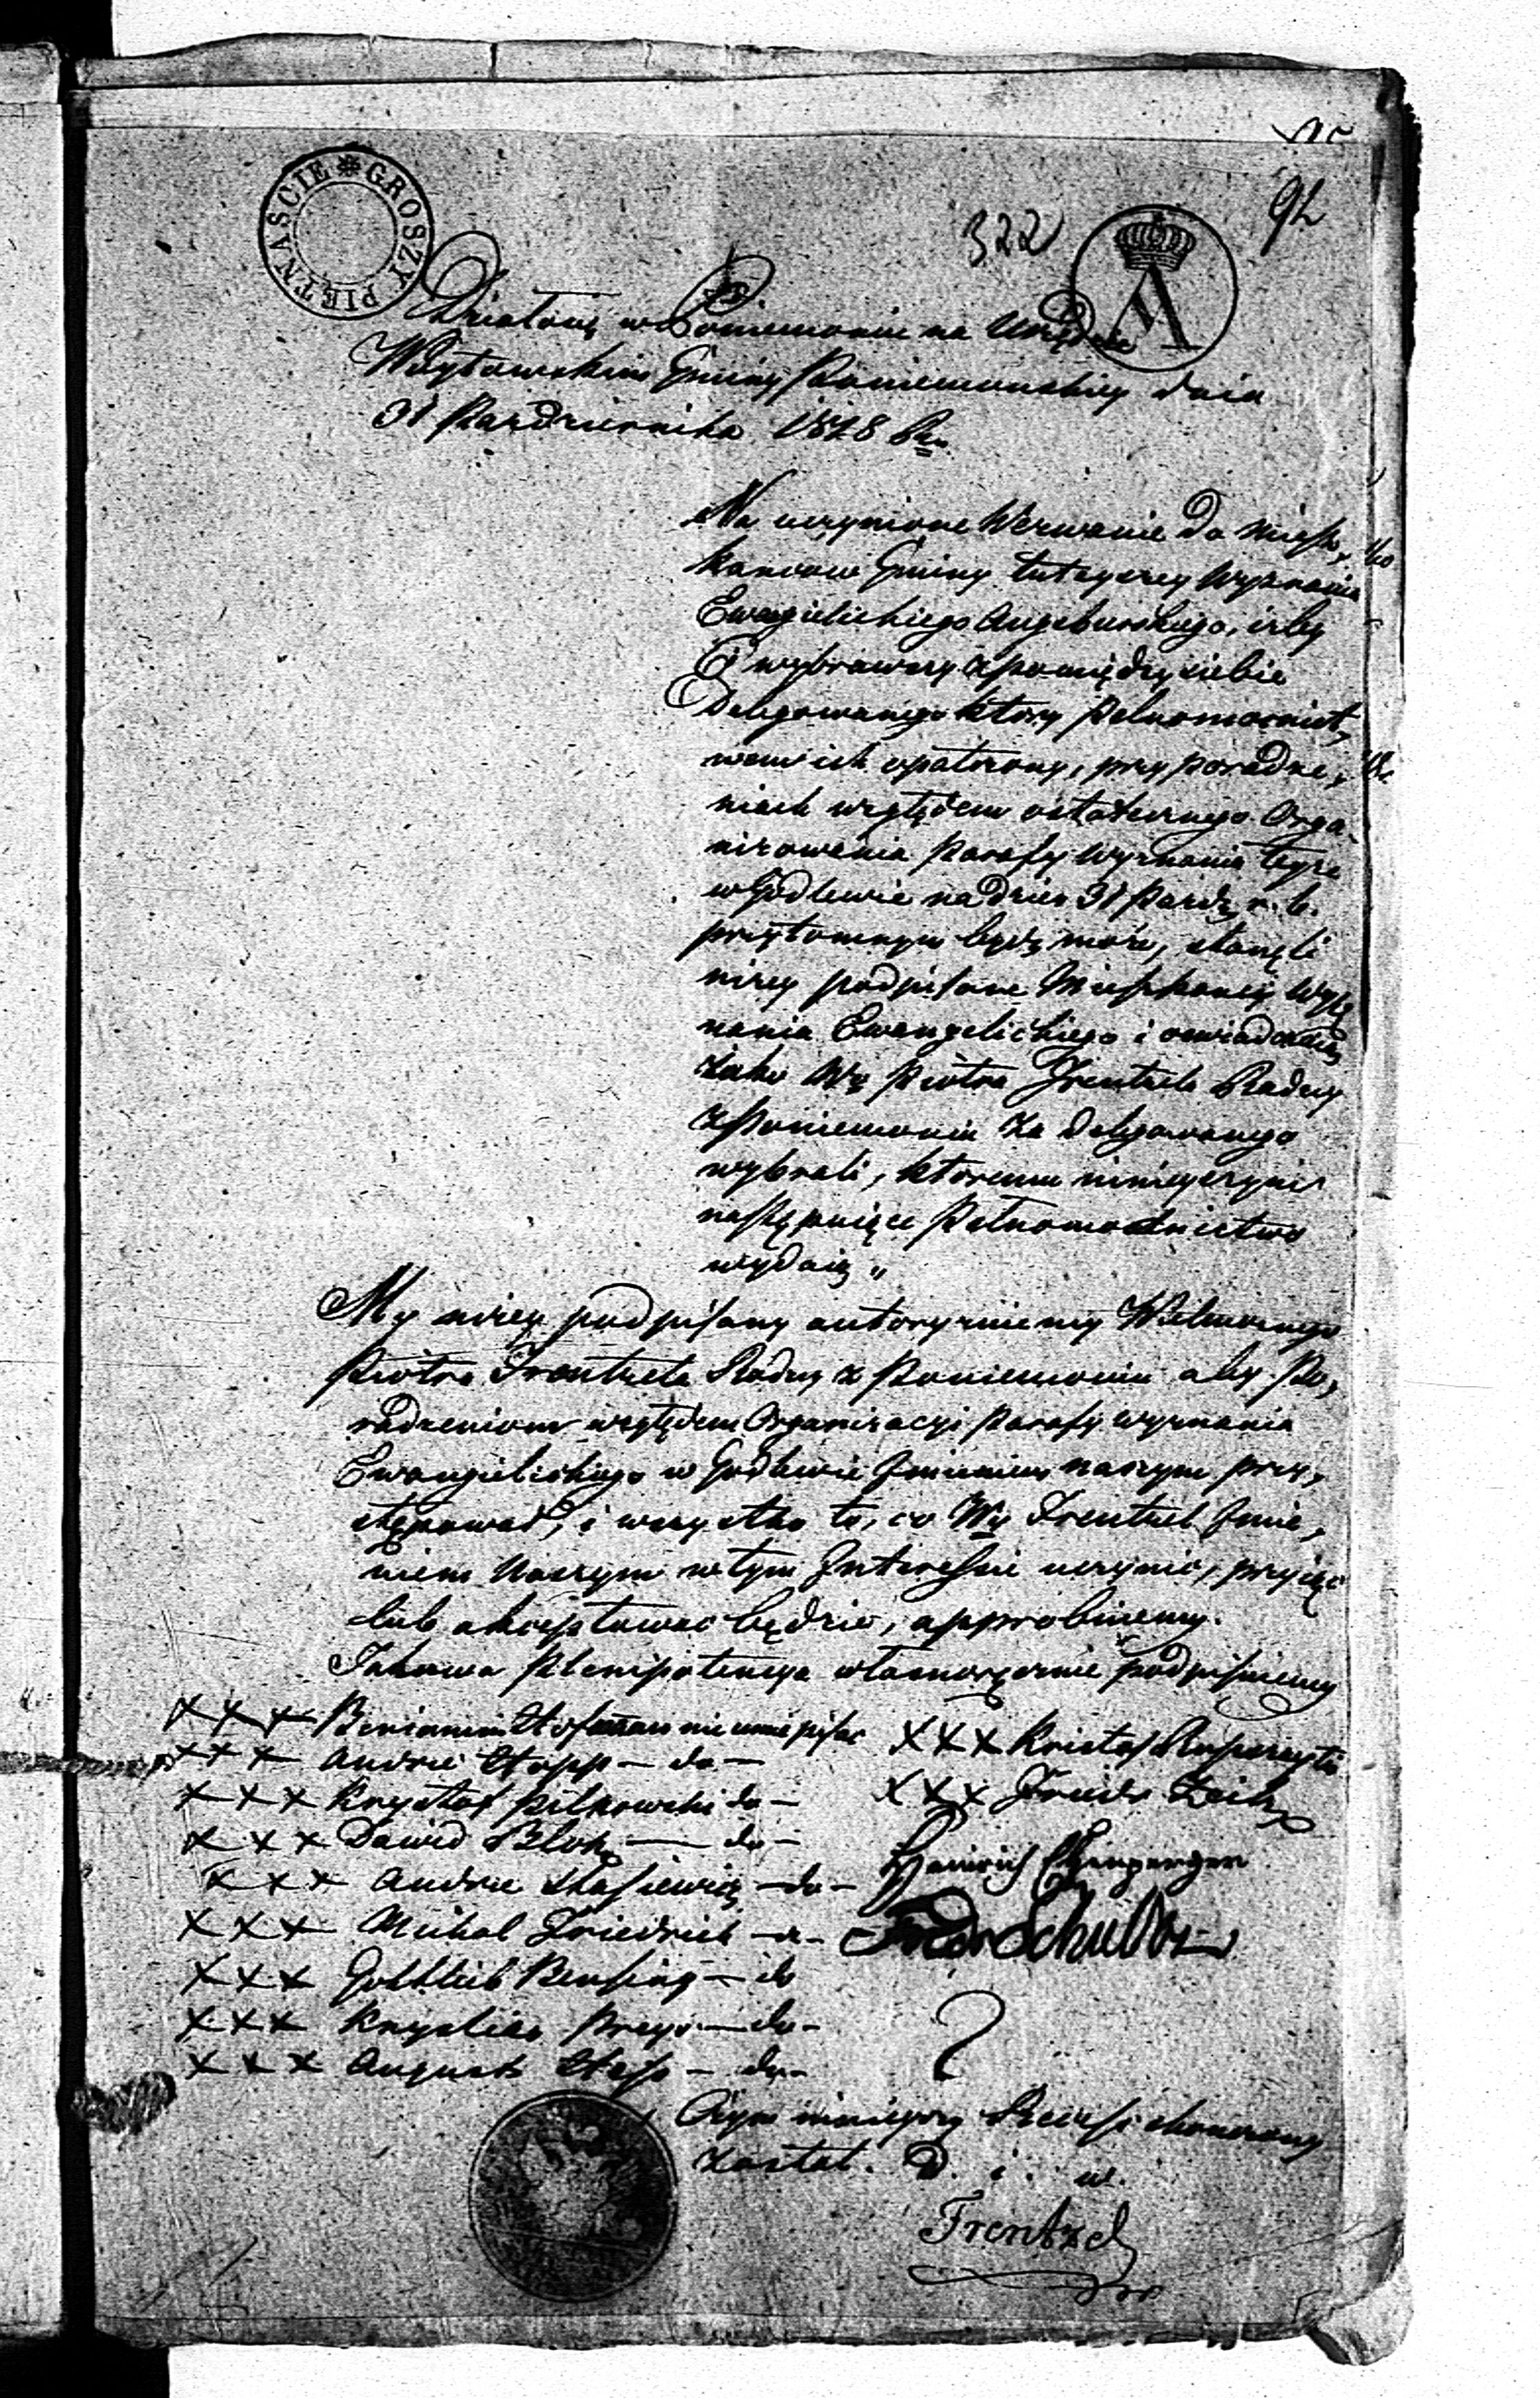 PIĘTNAŚCIE GROSZY
322
92
Działoszę w Poniemoniu na Urzędzie
Woytowskim Gminy Poniemonskiey dnia
31 Pazdziernika 1828 Ru
Na uczynione Wezwanie do Miesz,
kancow Gminy tuteyszey Wyznania
Ewagielickiego Augsburskiego, izby
Ci wybrawszy z pomiędzy siebie
Delegowanego ktory Pełnomocnict,
wem ich opatrzony, przy poradze,
niach względem ostatecznego Orga-
nizowania Parafy Wyznania tegoz
w Godlewie na dzien 31 Pazdz r. b.
przytomnym bydz moze, stanęli
nizey podpisane Mieszkancy Wyz,
nania Ewangelickiego i oswiadczaią
Jako WP Piotra Frentzela Radcy
z Poniemonia za delegowanego
wybrali, ktoremu ninieyszym
następuiące Pełnomocnictwo
wydaią,,
My nizey podpisany autoryzuiemy Wielmoznego
Piotra Frentzela Radcy z Poniemonia aby Po,
radzeniom względem Organizacyi Parafy wyznania
Ewangielickiego w Godlewie Imieniem naszym przy,
stępował, i wszystko to, co WP Frentzel Imie,
niem Naszym w tym Interesie uczynic, przyiąc
lub akceptowac będzie, approbuiemy.
Takowa Plenipotencya własnoręcznie podpisuiemy
XXX Beniamin Hofman nie umie pisac
XXX Kristof
XXX Andrie Stapp — do —
XXX Friedr
XXX Krysztof Pilkowski do —
XXX Dawid Block — do —
Heinrich
XXX Andrie Stasiewicz — do —
XXX Michal Friedrich — do —
Schultz
XXX Gottlieb Bensing — do
XXX Krystian — do —
XXX August — do —
Czym ninieyszy
został. D. i. w.
Frentzel